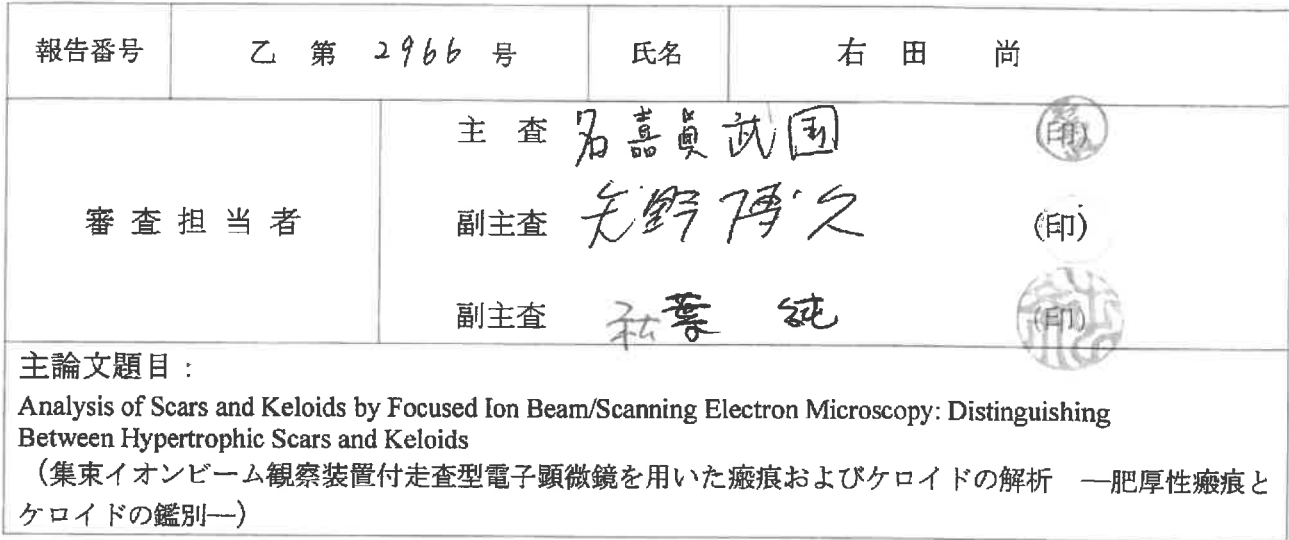 報告番号 乙 第 2966 号 氏名 右 田 尚
主 査 名嘉眞武国 (印)
審 査 担 当 者 副主査 矢野博久 (印)
副主査 秋葉 純 (印)
主論文題目：
Analysis of Scars and Keloids by Focused Ion Beam/Scanning Electron Microscopy: Distinguishing
Between Hypertrophic Scars and Keloids
（集束イオンビーム観察装置付走査型電子顕微鏡を用いた瘢痕およびケロイドの解析 ―肥厚性瘢痕と
ケロイドの鑑別―）